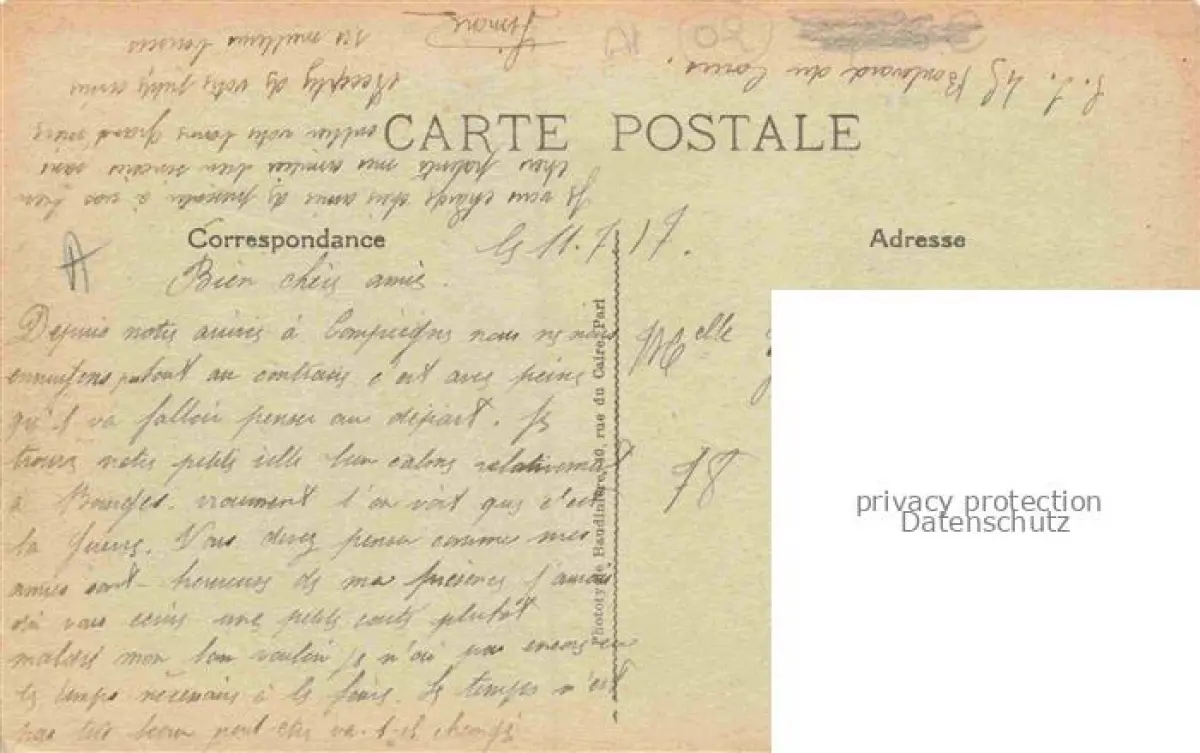 CARTE POSTALE
Correspondance
Adresse
le 11.7.17.
Bien chers amis.
Depuis notre arrivée à Compiègne nous ne nous
ennuyons partout au contraire c'est avec peine
qu'il va falloir penser au départ. Je
trouve notre petite ville bien calme relativement
à Bourges. vraiment l'on voit que c'est
la guerre. Vous devez penser comme mes
amies sont heureuses de ma présence j'aurais
dû vous écrire une petite carte plutôt
malgré mon bon vouloir je n'ai pas encore eu
le temps nécessaire à le faire. Le temps n'est
pas très beau peut être va-t-il changer
Je vous charge chers amis de présenter à vos bien
chers parents mes amitiés bien sincères sans
oublier votre bonne grand'mère
Reçevez de votre petite amie
ses meilleurs baisers
Simone
49 Boulevard du Cours.
A
02
A
Melle
78
Phototypie Baudinière, rue du Caire, Pari
privacy protection
Datenschutz